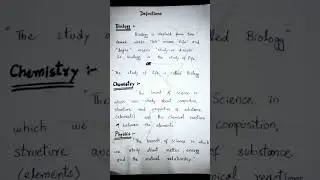 Definitions
Biology :-
Biology is derived from two
words "bio" means "life" and
"logos" means "study or
so biology is the study of life.
OR
"The study of life is called Biology
Chemistry :-
"The branch of science in
which we study about composition,
structure and properties of substance
(elements) and the chemical reactions
between the elements.
Physics :-
"The branch of science in which
we study about matter, energy
and the mutual relationship."
"The study o
Biology"
Chemistry :-
"The
Science in
which we
composition,
structure an
of substance
(elements)
reactions